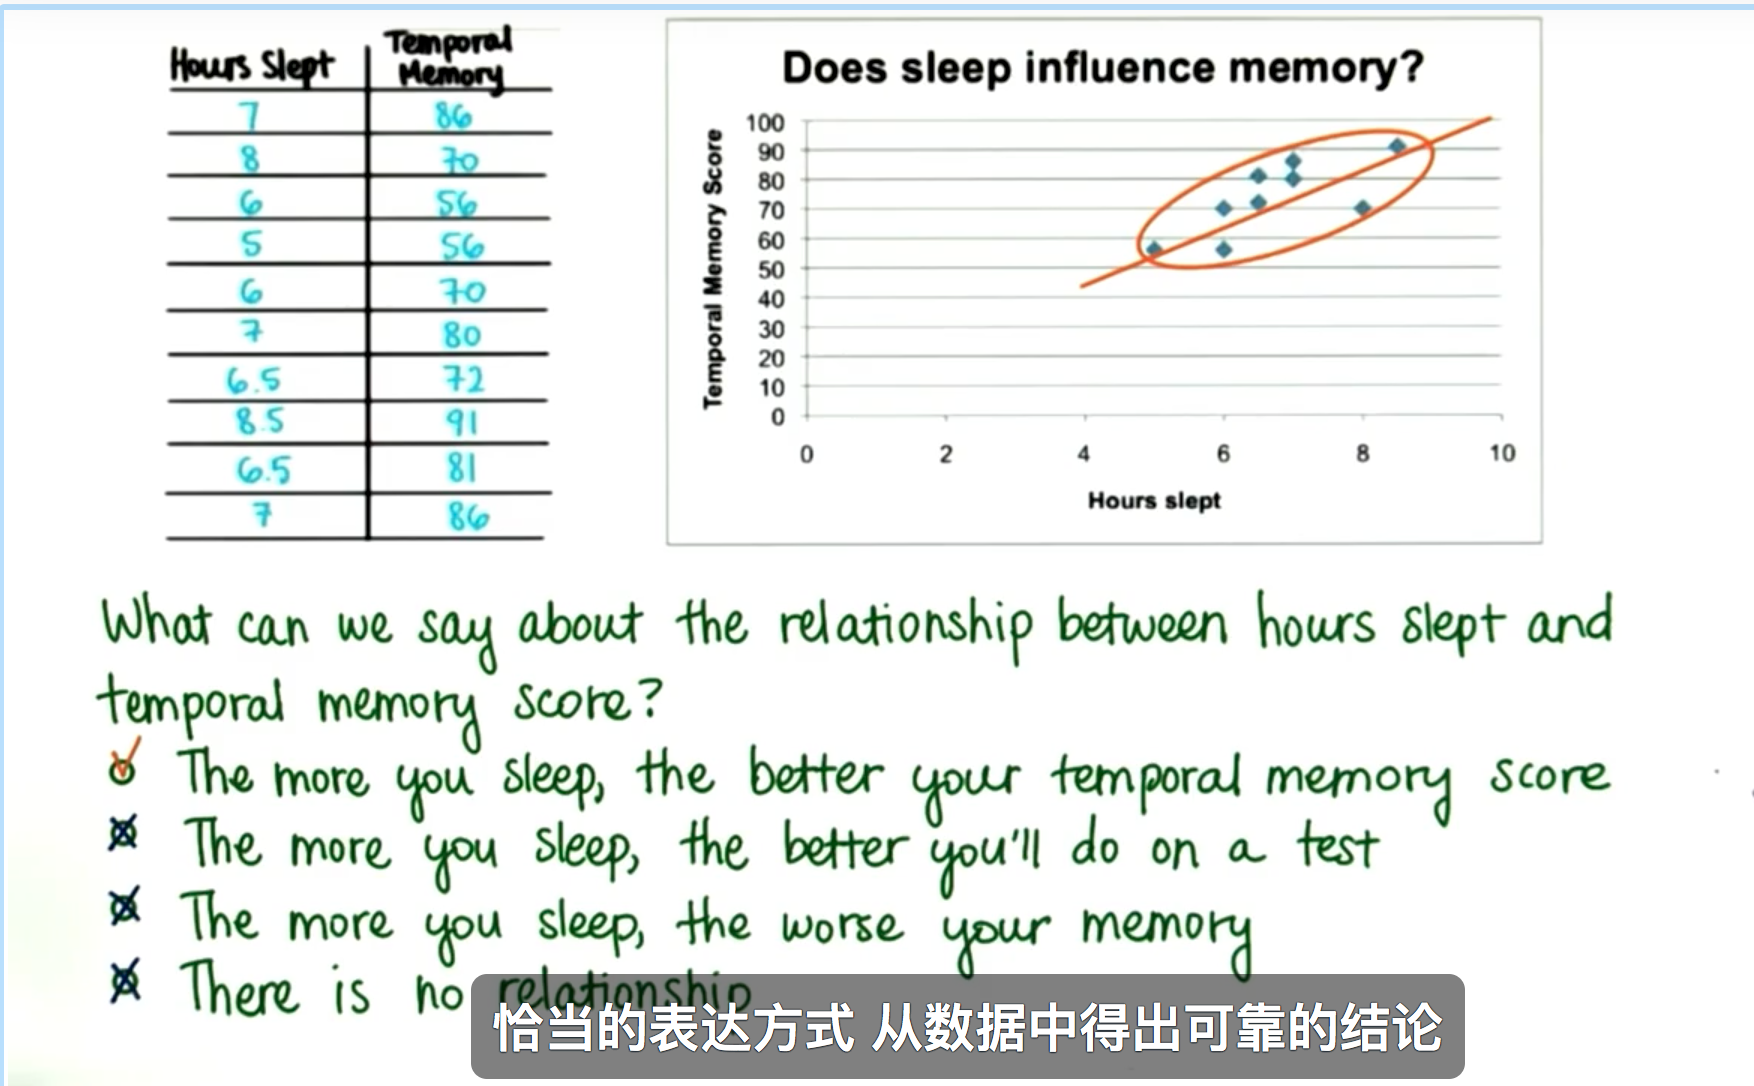 Hours Slept Temporal Memory
7 86
8 70
6 56
5 56
6 70
7 80
6.5 72
8.5 91
6.5 81
7 86
Does sleep influence memory?
Temporal Memory Score
100
90
80
70
60
50
40
30
20
10
0
0 2 4 6 8 10
Hours slept
What can we say about the relationship between hours slept and
temporal memory score?
The more you sleep, the better your temporal memory score
The more you sleep, the better you'll do on a test
The more you sleep, the worse your memory
There is no relationship
恰当的表达方式 从数据中得出可靠的结论